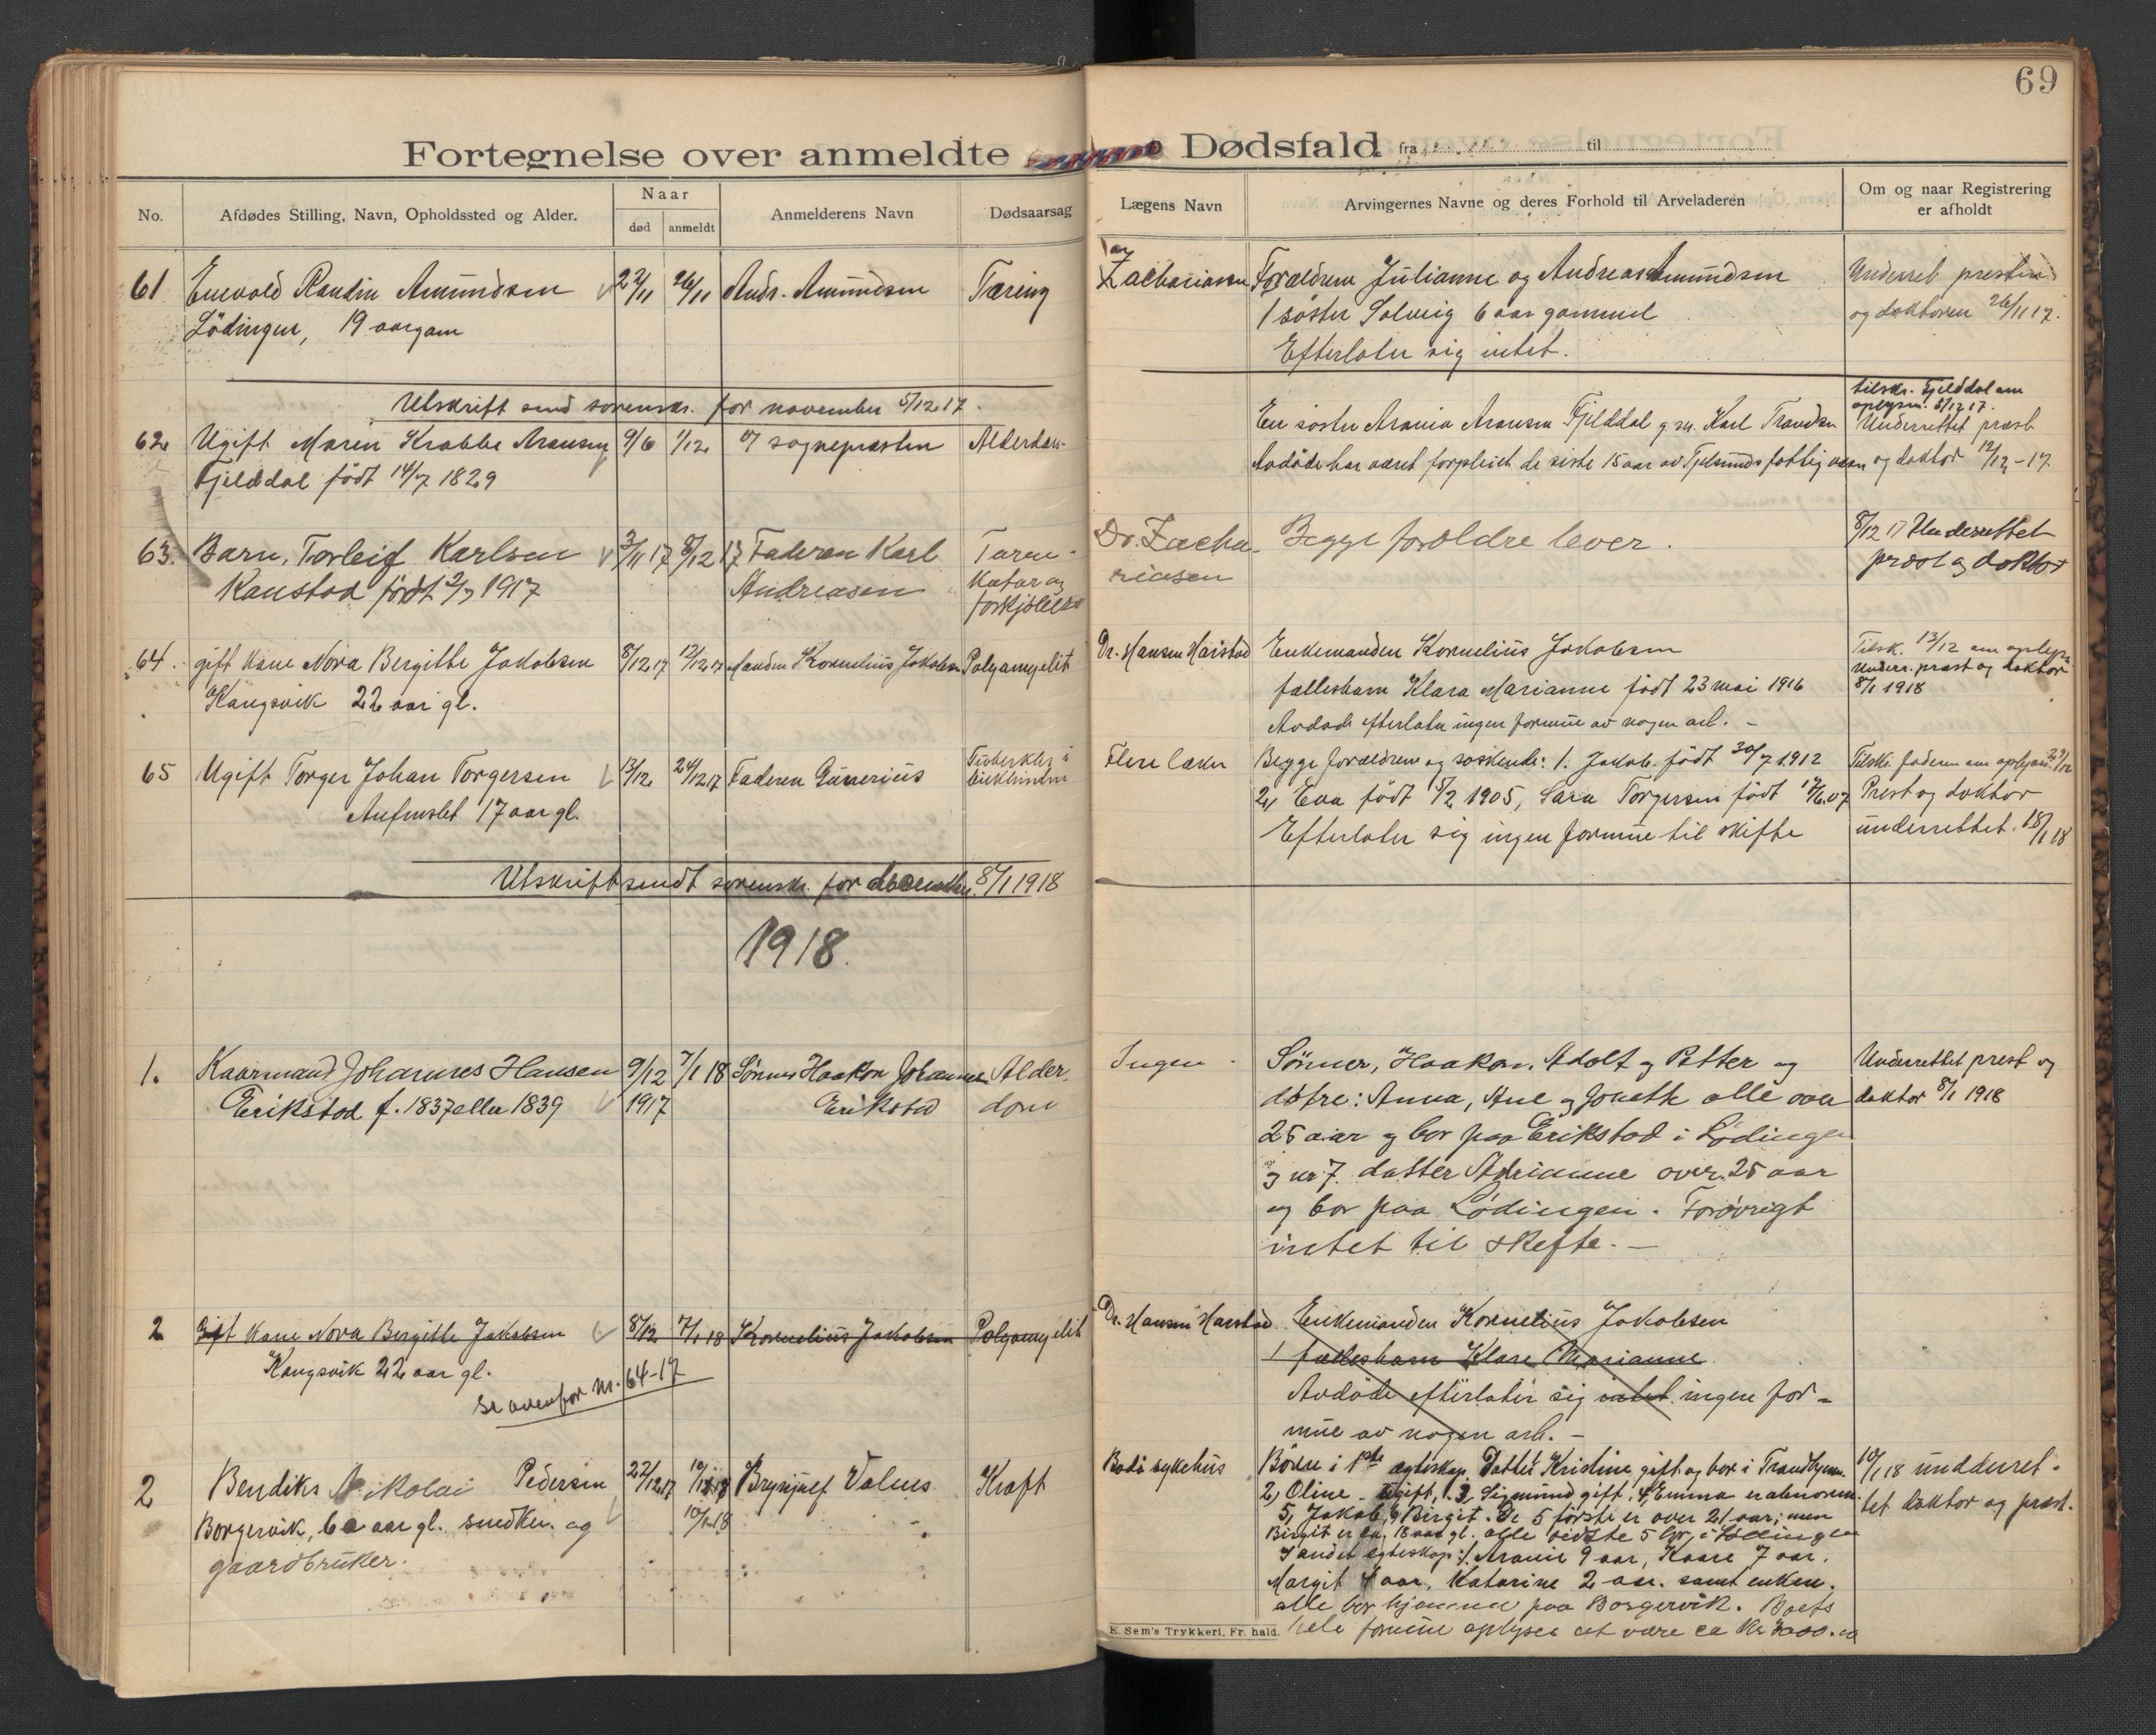 69
Fortegnelse over anmeldte Dødsfald fra til
No.
Afdødes Stilling, Navn, Opholdssted og Alder.
Naar
død
anmeldt
Anmelderens Navn
Dødsaarsag
Lægens Navn
Arvingernes Navne og deres Forhold til Arveladeren
Om og naar Registrering
er afholdt
61 Enevold Randin Amundsen 22/11 26/11 Andr. Amundsen Tæring
Lödingen, 19 aar gam
Zachariassen Forældrene Julianne og Andreas Amundsen
1 søster Solveig 6 aar gammel
Efterlater sig intet.
Underret presten
og doktoren 26/11 17.
Utskrift send sorensk. for november 5/12 17.
62 Ugift Maren Krabbe Aronsen 9/6 1/12 sognepresten Alderdom
Fjelddal født 14/7 1829
En søster Arania Aronsen Fjelddal g m. Karl
Avdøde har været forpleiet de siste 15 aar av Tjelsunds fattigvæsen
tilskr. Fjelddal om
oplysn. 5/12 17.
Underrettet præst
og doktor 12/12-17.
63. Barn, Torleif Karlsen 3/11 17 8/12 17 Faderen Karl
Kanstad født 2/7 1917
Andreasen
katar og
forkjølelse
Dr. Zacha-
riasen
Begge forældre lever.
8/12 17 Underrettet
præst og doktor
64. gift kone Nora Bergitte Jakobsen 8/12 17 12/12 17 Manden Kornelius Jakobsen Polyamyelit
Kongsvik 22 aar gl.
Dr. Hansen Harstad Enkemanden Kornelius Jakobsen
fællesbarn Klara Marianne født 23 mai 1916
Avdøde efterlater ingen formue av nogen art. -
Tilsk. 13/12 om oplysn.
Underr. præst og doktor
8/1 1918
65 Ugift Torger Johan Torgersen 13/12 24/12 17 Faderen Gunerius
17 aar gl.
Tuberkler i
Flere læker Begge forældrene og søskende: 1. Jakob. født 30/7 1912
2, Eva født 5/2 1905, Sara Torgersen født 17/6.07
Efterlater sig ingen formue til skifte
Tilskr. faderen om oplysn.
Prest og doktor
underrettet. 18/1 18
Utskrift sendt sorensk. for december 8/1 1918
1918.
1. Kaarmand Johannes Hansen 9/12 7/1 18 Sönnen Haakon Johannes. Alder-
Erikstad f. 1837 eller 1839 1917 Erikstad dom
Ingen - Sönner, Haakon, Adolf og Petter og
døtre: Anna, Ane og Jonette alle over
25 aar og bor paa Erikstad i Lödingen
og nr 7. datter Adrianne over 25 aar
og bor paa Lödingen. Forøvrigt
intet til skefte. -
Underrettet prest og
doktor 8/1 1918
2 Gift kone Nora Bergitte Jakobsen 8/12 7/1 18 Kornelius Jakobsen Polyamyelit
Kongsvik 22 aar gl.
se ovenfor nr. 64-17
Dr. Hansen Harstad Enkemanden Kornelius Jakobsen
1 fællesbarn Klara Marianne
Avdøde efterlater sig intet ingen for-
mue av nogen art. -
2 Bendiks Nikolai Pedersen 22/12 17 10/1 18 Brynjulf Valnes Kræft
Borgervik, 60 aar gl. snedker og 10/1 18
gaardbruker.
Bodö sykehus Börn i 1ste egteskap. Datter Kristine, gift og bor i Trondhjem.
2, Oline ugift, 3, Sigmund gift, 4, Emma
5, Jakob, 6, Birgit. De 5 første er over 21 aar; men
Birgit er ca. 18 aar gl. alle sidste 5 bor i Lödingen
I andet egteskap: 1. Aranie 9 aar, Kaare 7 aar,
Margit 4 aar, Katarine 2 aar. samt enken.
alle bor hjemme paa Borgervik. Boets
hele formue oplyses at være ca kr 3000.
10/1 18 undderret-
tet doktor og præst.
E. Sem's Trykkeri, Fr. hald.